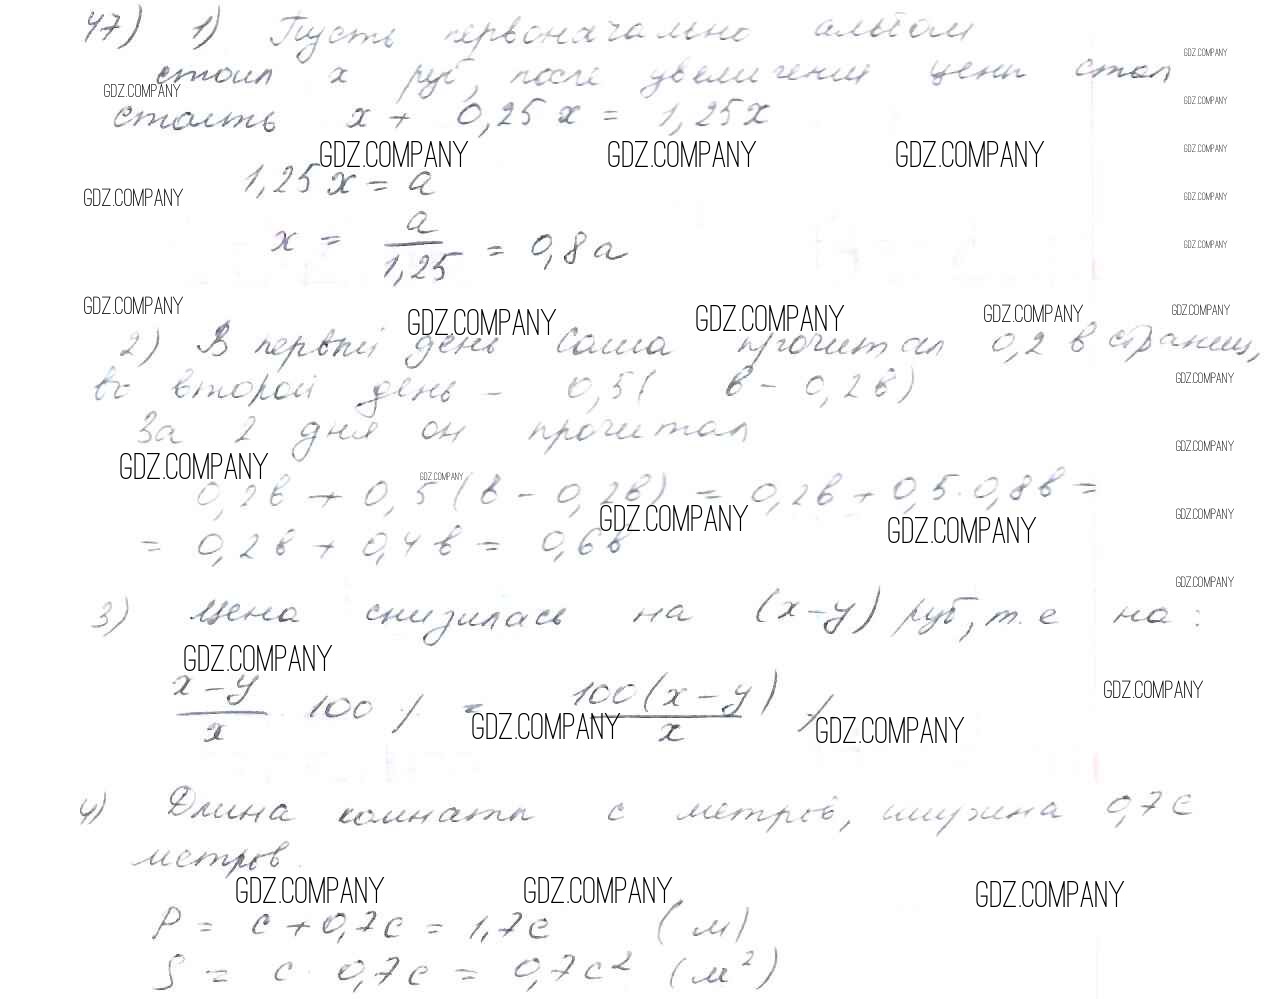 47) 1) Пусть первоначально альбом
GDZ.COMPANY
стоил x руб, после увеличения цены стал
GDZ.COMPANY
GDZ.COMPANY
стоить x + 0,25x = 1,25x
GDZ.COMPANY GDZ.COMPANY GDZ.COMPANY GDZ.COMPANY
1,25x = a
GDZ.COMPANY GDZ.COMPANY
x = a/1,25 = 0,8a
GDZ.COMPANY
GDZ.COMPANY GDZ.COMPANY GDZ.COMPANY GDZ.COMPANY GDZ.COMPANY
2) В первый день Саша прочитал 0,2 в страниц,
во второй день - 0,5( в - 0,2в)
GDZ.COMPANY
За 2 дня он прочитал
GDZ.COMPANY
GDZ.COMPANY GDZ.COMPANY
0,2в + 0,5(в - 0,2в) = 0,2в + 0,5·0,8в =
GDZ.COMPANY GDZ.COMPANY GDZ.COMPANY
= 0,2в + 0,4в = 0,6в
GDZ.COMPANY
3) Цена снизилась на (x-y) руб, т.е на:
GDZ.COMPANY
GDZ.COMPANY
x-y/x 100 % = 100(x-y)/x %
GDZ.COMPANY GDZ.COMPANY
4) Длина комнаты с метров, ширина 0,7с
метров.
GDZ.COMPANY GDZ.COMPANY GDZ.COMPANY
P = c + 0,7c = 1,7c (м)
S = c · 0,7c = 0,7c² (м²)